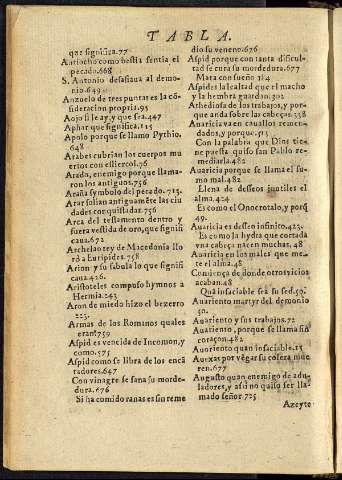 TABLA.
que significa.77
Antiocho como bestia sentia el
pecado.668
S. Antonio desafiaua al demo-
nio.649.
Anzuelo de tres puntas es la cõ-
sideracion propria.95
Aojo si le ay, y que sea.447
Aphar que significa.115
Apolo porque se llamo Pythio.
648
Arabes cubrian los cuerpos mu
ertos con estiercol.76
Arada, enemigo porque llama-
ron los antiguos.756
Araña symbolo del pecado.713.
Arar solian antiguamẽte las ciu
dades conquistadas.756
Arca del testamento dentro y
fuera vestida de oro, que signifi
caua.672
Archelao rey de Macedonia llo
rd a Euripides.758
Arion y su fabula lo que signifi
caua.426.
Aristoteles compuso hymnos a
Hermia.243
Aron de miedo hizo el bezerro
223.
Armas de los Romanos quales
eran?759
Aspid es vencida de Incomon, y
como.575
Aspid como se libra de los encã
tadores.647
Con vinagre se sana su morde-
dura.676
Si ha comido ranas es sin reme
dio su veneno.676
Aspid porque con tanta dificul-
tad se cura su mordedura.677
Mata con sueño
Aspides la lealtad que el macho
y la hembra guardan.302
Athediosa de los trabajos, y por-
que anda sobre las cabeças.358
Auaricia va en cauallos remen-
dados, y porque.513
Con la palabra que Dios tie-
ne puesta quiso san Pablo re-
mediarla.482
Auaricia porque se llama el su-
mo mal.482
Llena de desseos inutiles el
alma.424
Es como el Onocrotalo, y porq̃
49.
Auaricia es desseo infinito.423.
Es como la hydra que cortada
vna cabeça nacen muchas.48
Auaricia en los males que me-
te el alma.48
Comiença de donde otros vicios
acaban.48
Que insaciable sea su sed.50.
Auariento martyr del demonio
50.
Auariento y sus trabajos.72
Auariento, porque se llama sin
coraçon.482
Auariento quan insaciable.15
Auexas por vẽgar su colera mue
ren.677
Augusto quan enemigo de adu-
ladores, y assi no quiso ser lla-
mado señor.725
Azeyte